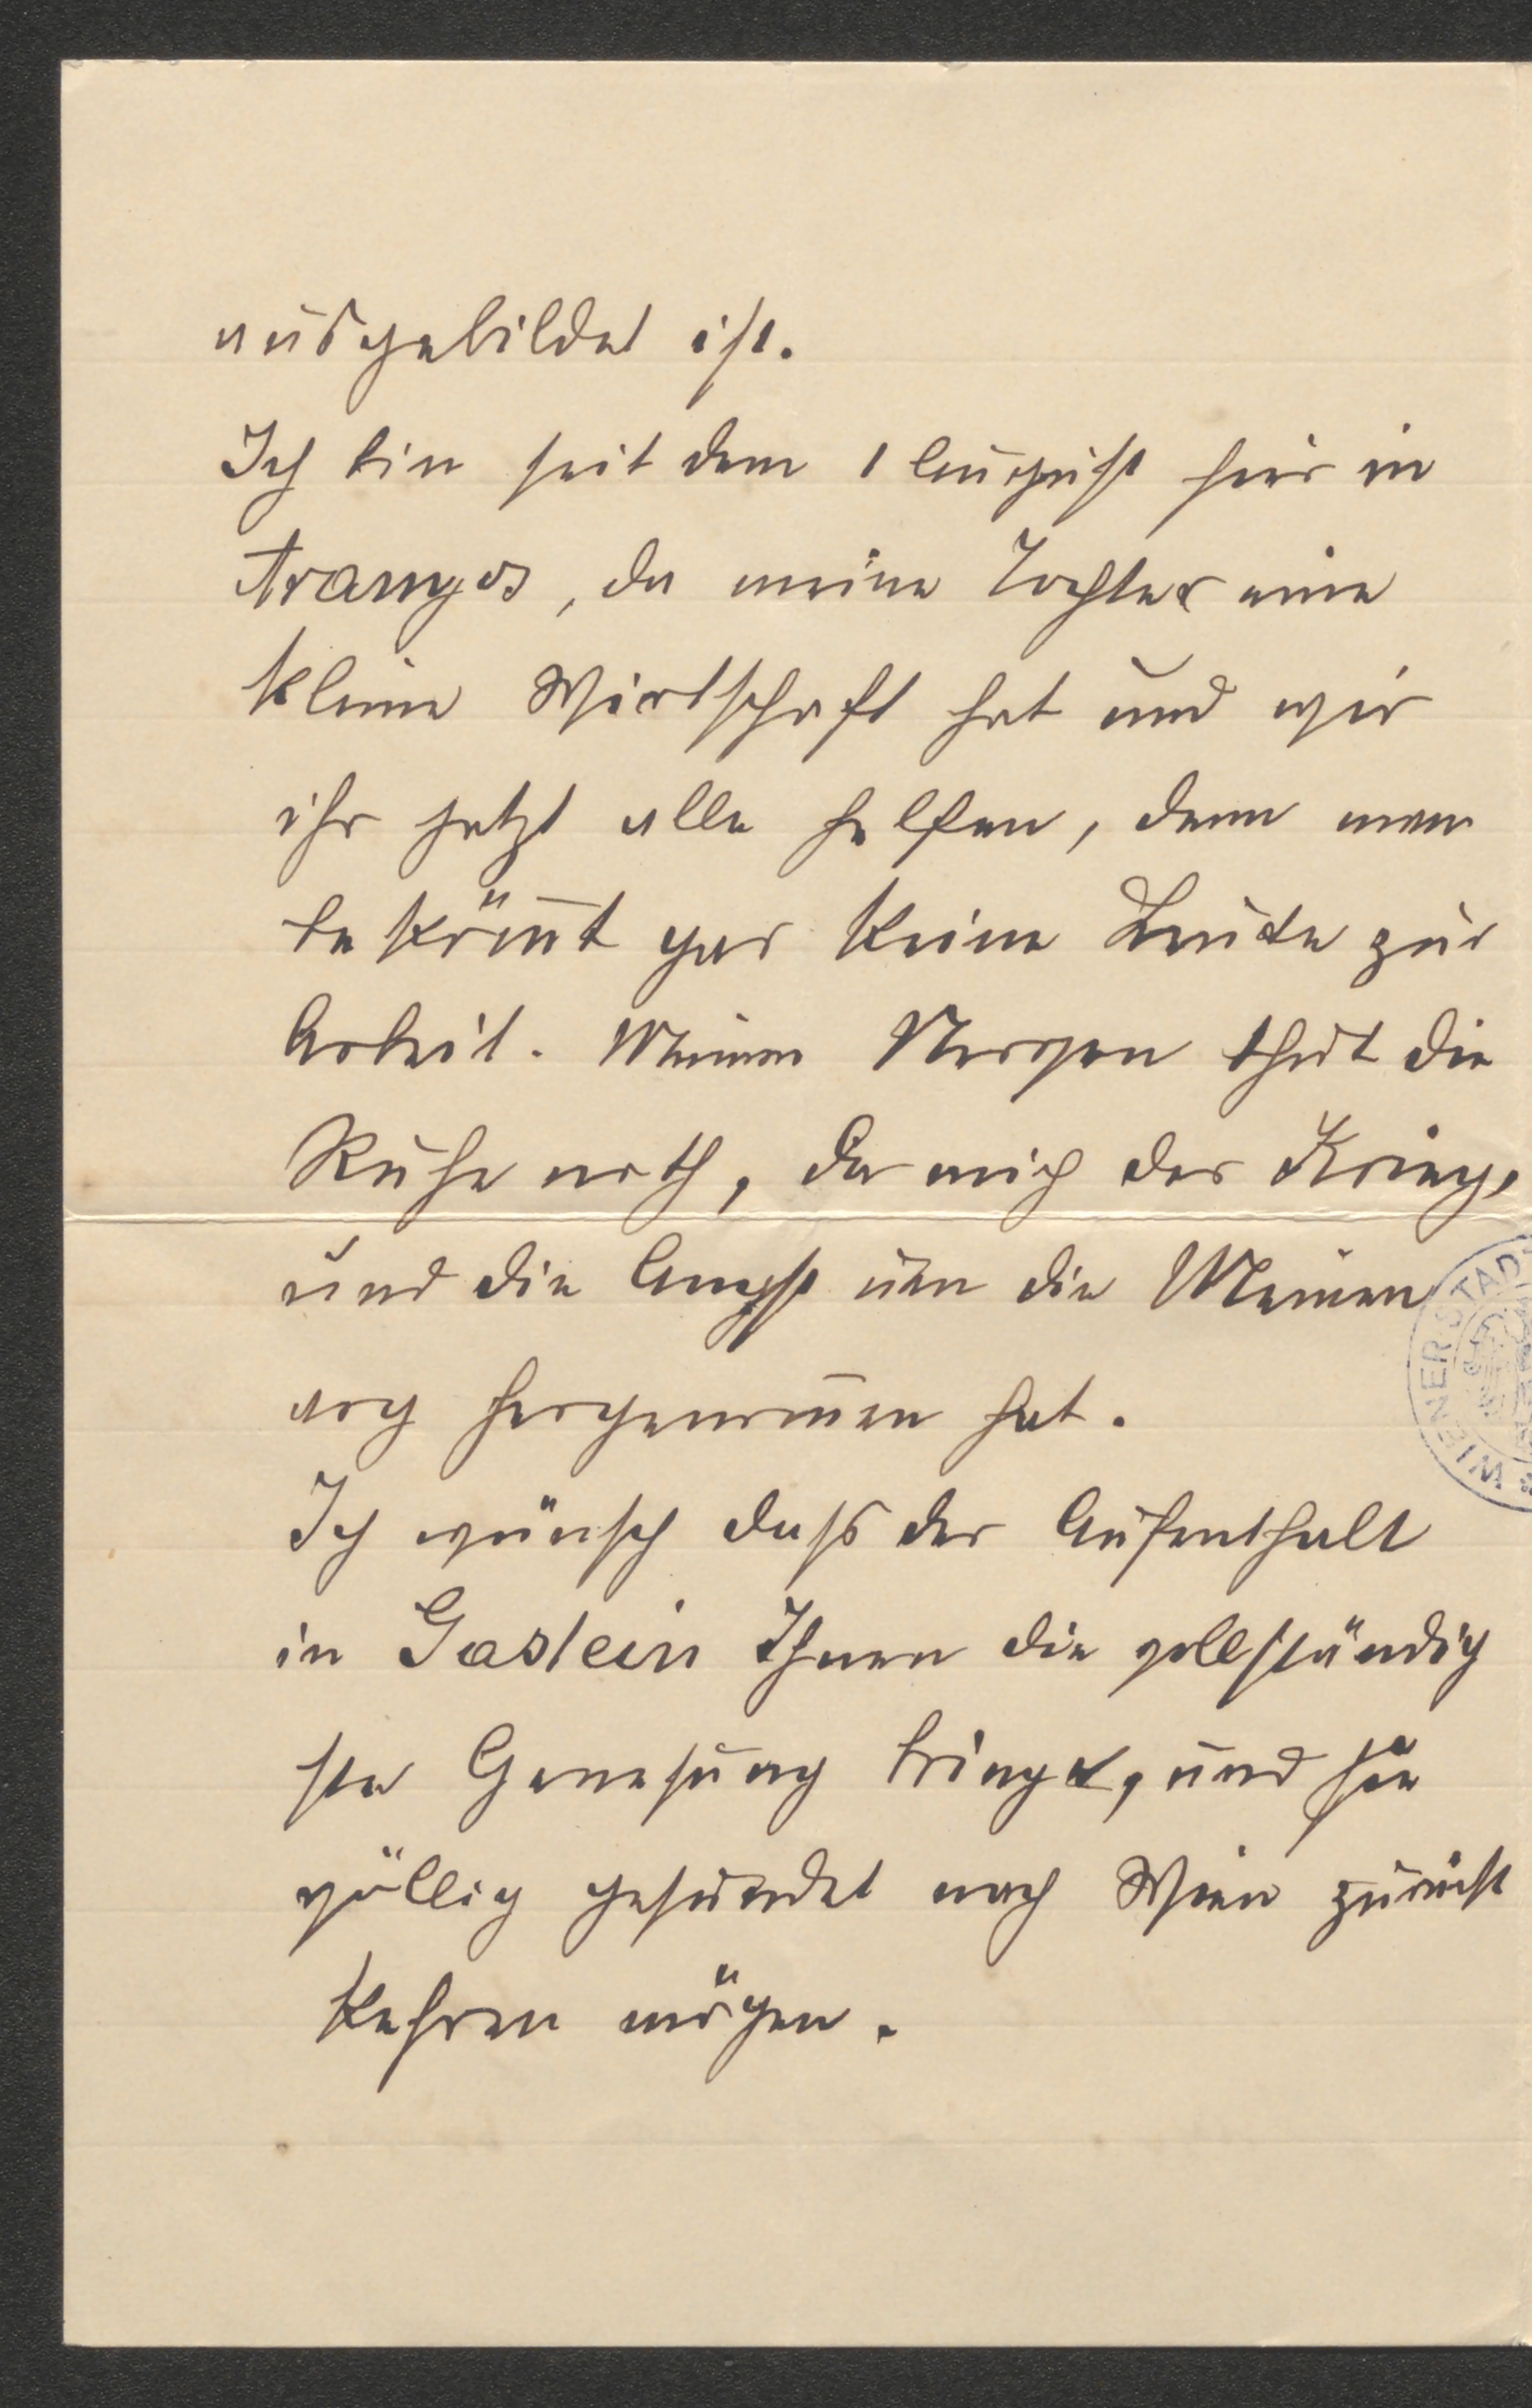 ausgebildet ist.
Ich bin seit dem 1 August hier in
Aranyos, da meine Tochter eine
kleine Wirtschaft hat und wir
ihr jetzt alle helfen, denn man
bekömt gar keine Leute zur
Arbeit. Meinen Nerven thut die
Ruhe noth, da mich der Krieg,
und die Angst um die Meinen
arg hergenomen hat.
Ich wünsch daß der Aufenthalt
in Gastein Ihnen die vollständig
ste Genesung bringt, und sie
völlig gesundet nach Wien zurück
kehren mögen.
WIENER STAD